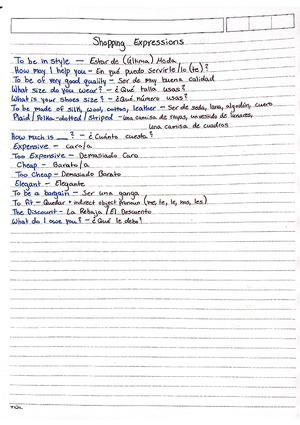 Shopping Expressions
To be in style — Estar de (Última) Moda
How may I help you - En qué puedo servirle/lo (te)?
To be of very good quality - Ser de muy buena calidad
What size do you wear? - ¿Qué talla usas?
What is your shoes size? - ¿Qué número usas?
To be made of silk, wool, cotton, leather - Ser de seda, lana, algodón, cuero
Plaid / Polka-dotted / Striped - Una camisa de rayas, un vestido de lunares,
una camisa de cuadros
How much is ___? - ¿Cuánto cuesta?
Expensive - caro/a
Too Expensive - Demasiado Caro
Cheap - Barato/a
Too Cheap - Demasiado Barato
Elegant - Elegante
To be a bargain - Ser una ganga
To Fit - Quedar + indirect object pronoun (me, te, le, nos, les)
The Discount - La Rebaja / El Descuento
What do I owe you? - ¿Qué le debo?